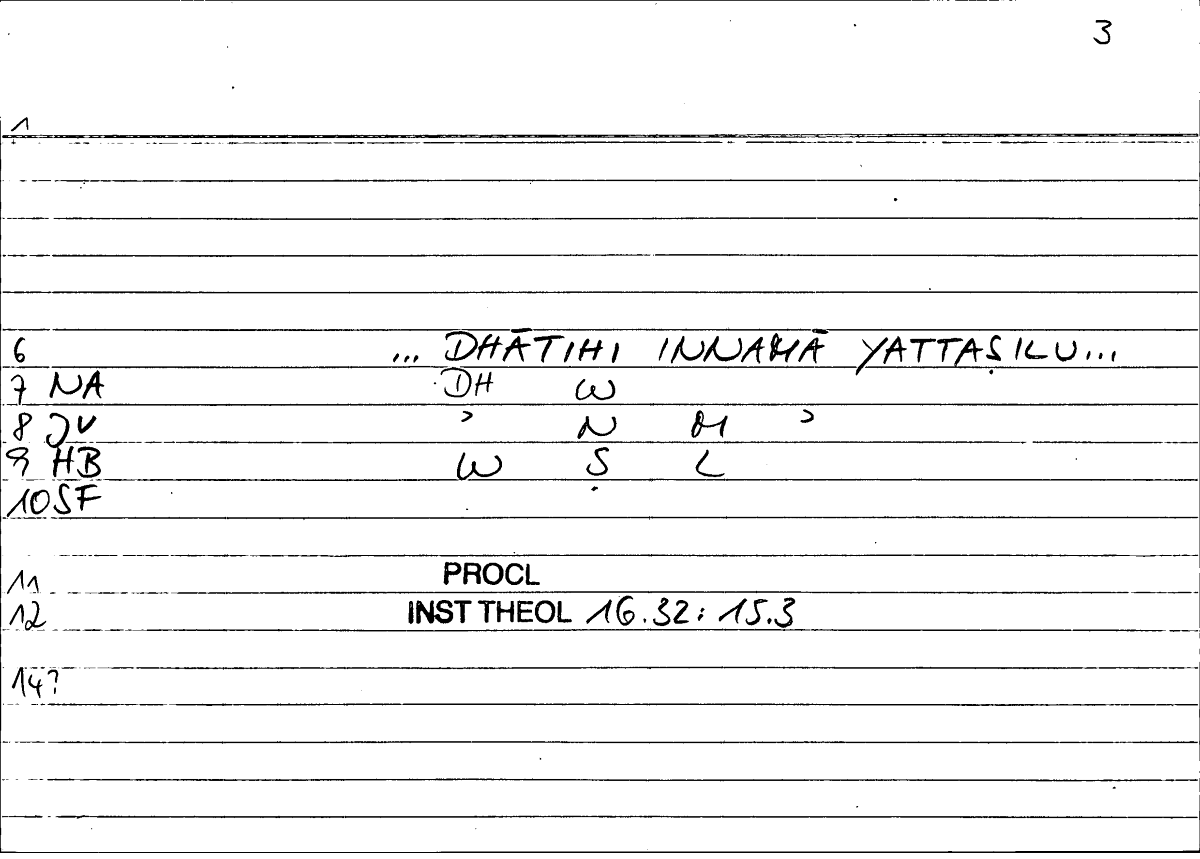 3
1
6 ... DHĀTIHI INNAMĀ YATTAṢILU...
7 NA DH W
8 JV ʾ N M ʾ
9 HB W Ṣ L
10 SF
11 PROCL
12 INST THEOL 16.32: 15.3
14?